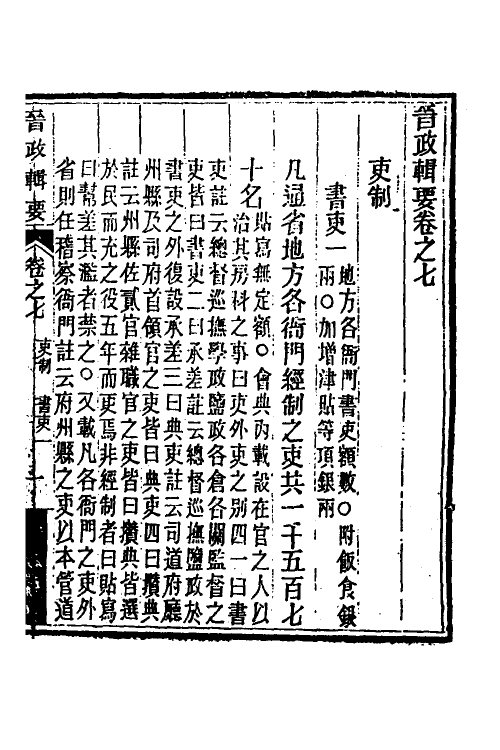 晉政輯要卷之七
吏制
書吏一
地方各衙門書吏額數○附飯食銀
兩○加增津貼等項銀兩
凡通省地方各衙門經制之吏共一千五百七
十名
貼寫無定額○會典內載設在官之人以
治其房科之事曰吏外吏之別四一曰書
吏註云總督巡撫學政鹽政各倉各關監督之
吏皆曰書吏二曰承差註云總督巡撫鹽政於
書吏之外復設承差三曰典吏註云司道府廳
州縣及司府首領官之吏皆曰典吏四曰攢典
註云州縣佐貳官雜職官之吏皆曰攢典皆選
於民而充之役五年而更焉非經制者曰貼寫
曰幫差其濫者禁之○又載凡各衙門之吏外
省則任稽察衙門註云府州縣之吏以本管道
晉政輯要
卷之七
吏制
書吏一
一